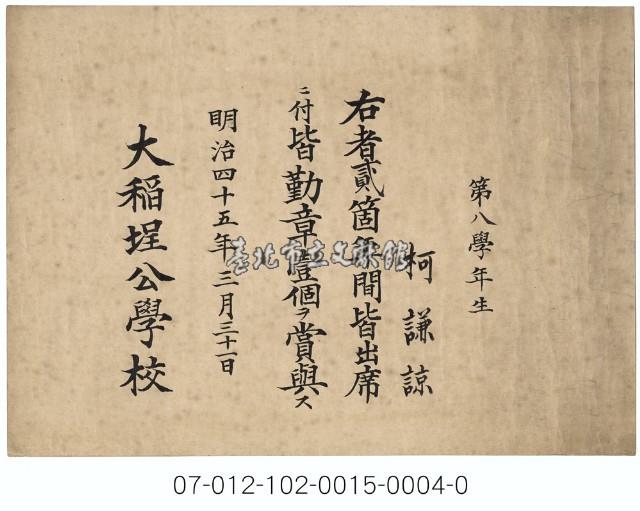 第八學年生
柯謙諒
右者貳箇年間皆出席
ニ付皆勤章壹個ヲ賞與ス
明治四十五年三月三十一日
大稲埕公學校
臺北市立文獻館
07-012-102-0015-0004-0